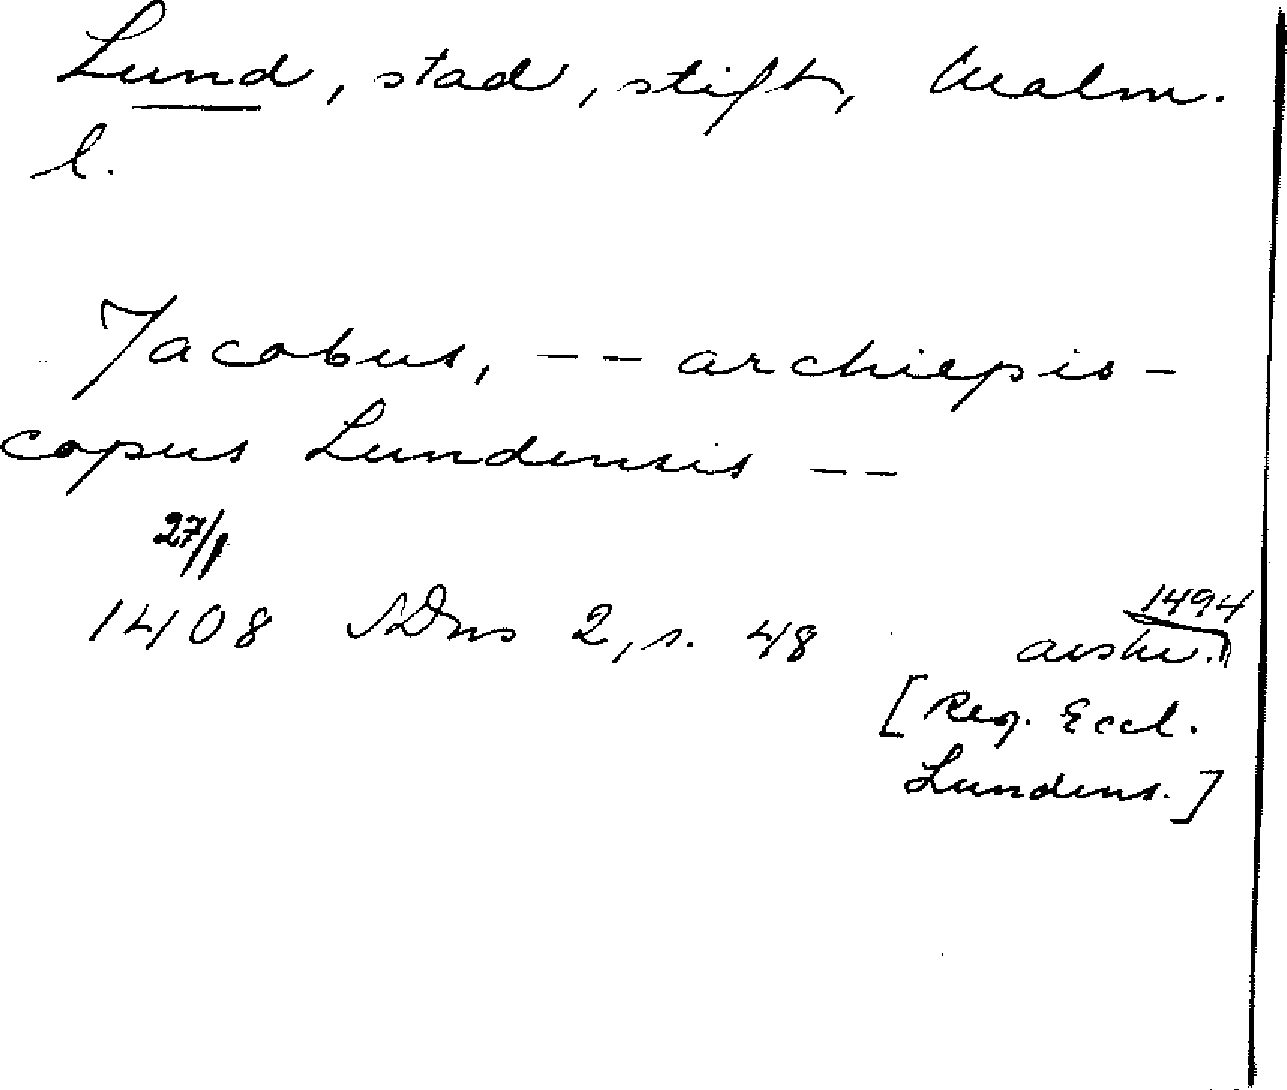 Lund, stad, stift, Malm.
l.
Jacobus, -- archiepis-
copus Lundensis --
27/1
1408 SDns 2, s. 48
1494
avskr.
[Reg. Eccl.
Lundens.]